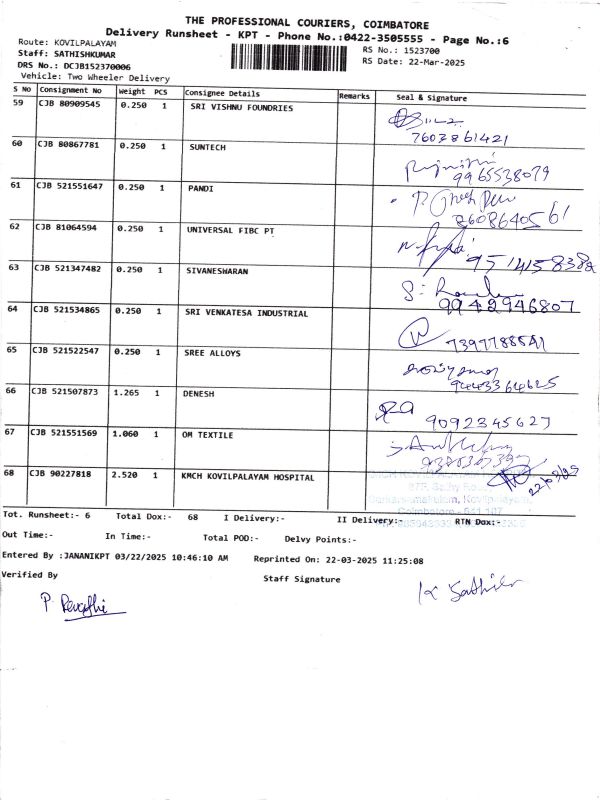 THE PROFESSIONAL COURIERS, COIMBATORE
Delivery Runsheet - KPT - Phone No.:0422-3505555 - Page No.:6
Route: KOVILPALAYAM
Staff: SATHISHKUMAR
DRS No.: DCJB152370006
Vehicle: Two Wheeler Delivery
RS No.: 1523700
RS Date: 22-Mar-2025
S No Consignment No Weight PCS Consignee Details Remarks Seal & Signature
59 CJB 80909545 0.250 1 SRI VISHNU FOUNDRIES
7603861421
60 CJB 80867781 0.250 1 SUNTECH
9965538079
61 CJB 521551647 0.250 1 PANDI
8608640561
62 CJB 81064594 0.250 1 UNIVERSAL FIBC PT
63 CJB 521347482 0.250 1 SIVANESWARAN
9942946807
64 CJB 521534865 0.250 1 SRI VENKATESA INDUSTRIAL
7397788541
65 CJB 521522547 0.250 1 SREE ALLOYS
9443364625
66 CJB 521507873 1.265 1 DENESH
9092345627
67 CJB 521551569 1.060 1 OM TEXTILE
68 CJB 90227818 2.520 1 KMCH KOVILPALAYAM HOSPITAL
22/03/25
Tot. Runsheet:- 6 Total Dox:- 68 I Delivery:- II Delivery:- RTN Dox:-
Out Time:- In Time:- Total POD:- Delvy Points:-
Entered By :JANANIKPT 03/22/2025 10:46:10 AM Reprinted On: 22-03-2025 11:25:08
Verified By Staff Signature
P. Revathi
K Sathish